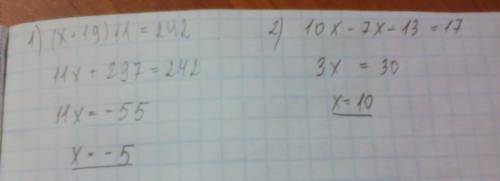 1) (x + 19) 11 = 242
11x + 297 = 242
11x = - 55
x = - 5
2) 10x - 7x - 13 = 17
3x = 30
x = 10